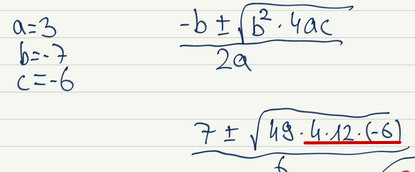 a=3
b=-7
c=-6
-b ± √b² · 4ac
2a
7 ± √49 · 4 · 12 · (-6)
6